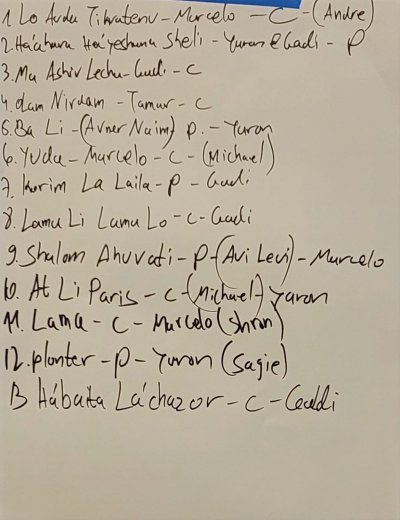 1. Lo Avda Tikvatenu - Marcelo - C - (Andre)
2. Ha'ahava Ha'yeshana Sheli - Yaron & Gadi - P
3. Ma Ashiv Lecha - Gadi - C
4. dam Nirdam - Tamar - C
5. Ba Li - (Avner Naim) P. - Yaron
6. Yuda - Marcelo - C - (Michael)
7. Korim La Laila - P - Gadi
8. Lama Li Lama Lo - C - Gadi
9. Shalom Ahuvati - P - (Avi Levi) - Marcelo
10. At Li Paris - C - (Michael) - Yaron
11. Lama - C - Marcelo (Shron)
12. plonter - P - Yaron (Sagie)
13 Hábaita Lá'chazor - C - Gadi